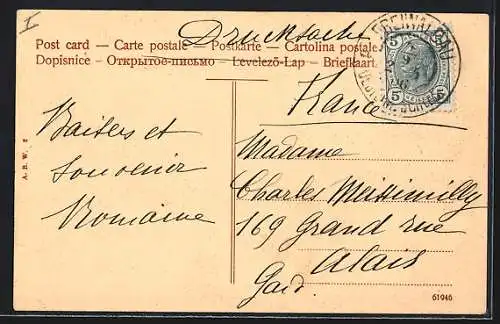 I
Drucksache
Post card – Carte postale – Postkarte – Cartolina postale
Dopisnice – Открытое-письмо – Levelező-Lap – Briefkaart
FREIWALDAU
5 5
France
Baisers et
souvenir
Romaine
Madame
Charles
169 Grand rue
Alais
Gard.
A. R. W. 2
61946